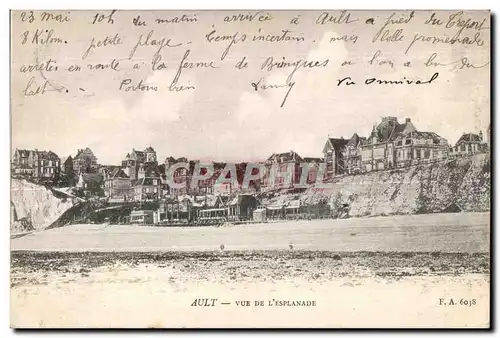 23 mai 10h du matin arrivée à Ault à pied du Tréport
8 Kilom. petite plage, temps incertain, mais Belle promenade
arrêtés en route à la ferme de où l'on a bu du
lait. Portons bien Vu
CPARAMA
AULT — VUE DE L'ESPLANADE
F. A. 6038